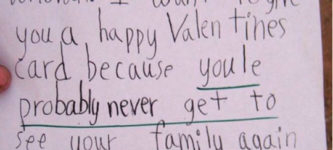 to give
you a happy Valentines
card because youle
probably never get to
see your family again